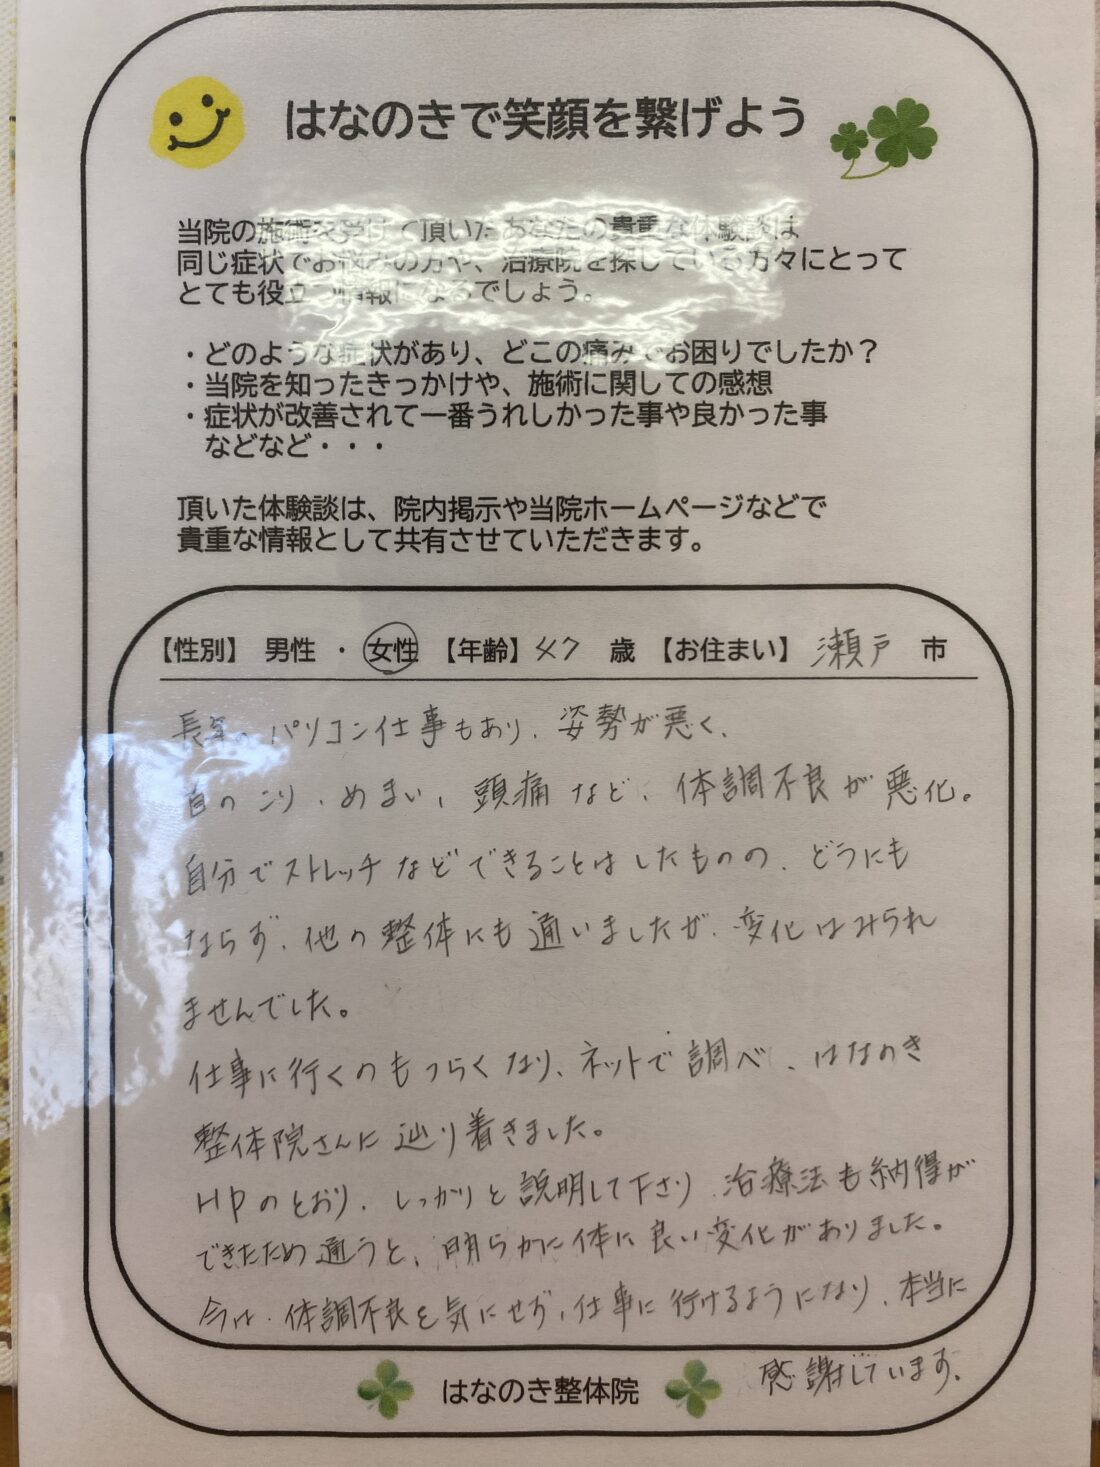 はなのきで笑顔を繋げよう
当院の施術を受けて頂いたあなたの貴重な体験談は
同じ症状でお悩みの方や、治療院を探している方々にとって
とても役立つ情報になるでしょう。
・どのような症状があり、どこの痛みでお困りでしたか？
・当院を知ったきっかけや、施術に関しての感想
・症状が改善されて一番うれしかった事や良かった事
などなど・・・
頂いた体験談は、院内掲示や当院ホームページなどで
貴重な情報として共有させていただきます。
【性別】 男性 ・ 女性 【年齢】 47 歳 【お住まい】 瀬戸 市
長年の パソコン仕事もあり、姿勢が悪く、
のこり、めまい、頭痛など、体調不良が悪化。
自分でストレッチなどできることはしたものの、どうにも
ならず、他の整体にも通いましたが、変化はみられ
ませんでした。
仕事に行くのもつらくなり、ネットで調べ、はなのき
整体院さんに辿り着きました。
HPのとおり、しっかりと説明して下さり、治療法も納得が
できたため通うと、明らかに体に良い変化がありました。
今は、体調不良を気にせず、仕事に行けるようになり、本当に
感謝しています。
はなのき整体院